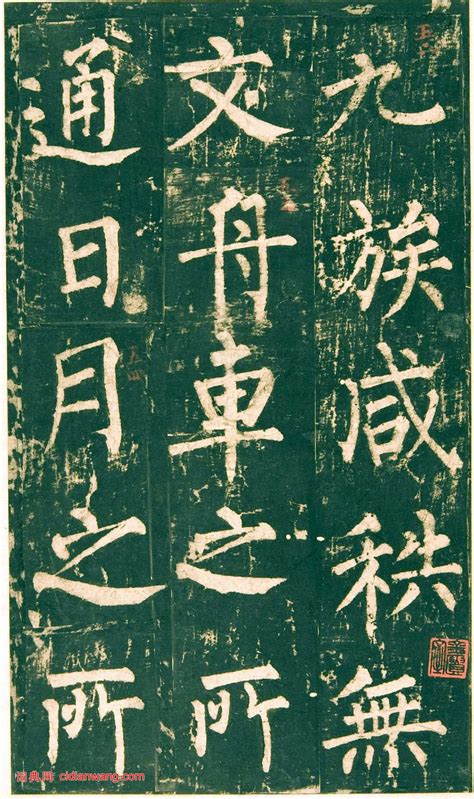 九族咸秩無
文舟車之所
通日月之所
词典网 cidianwang.com